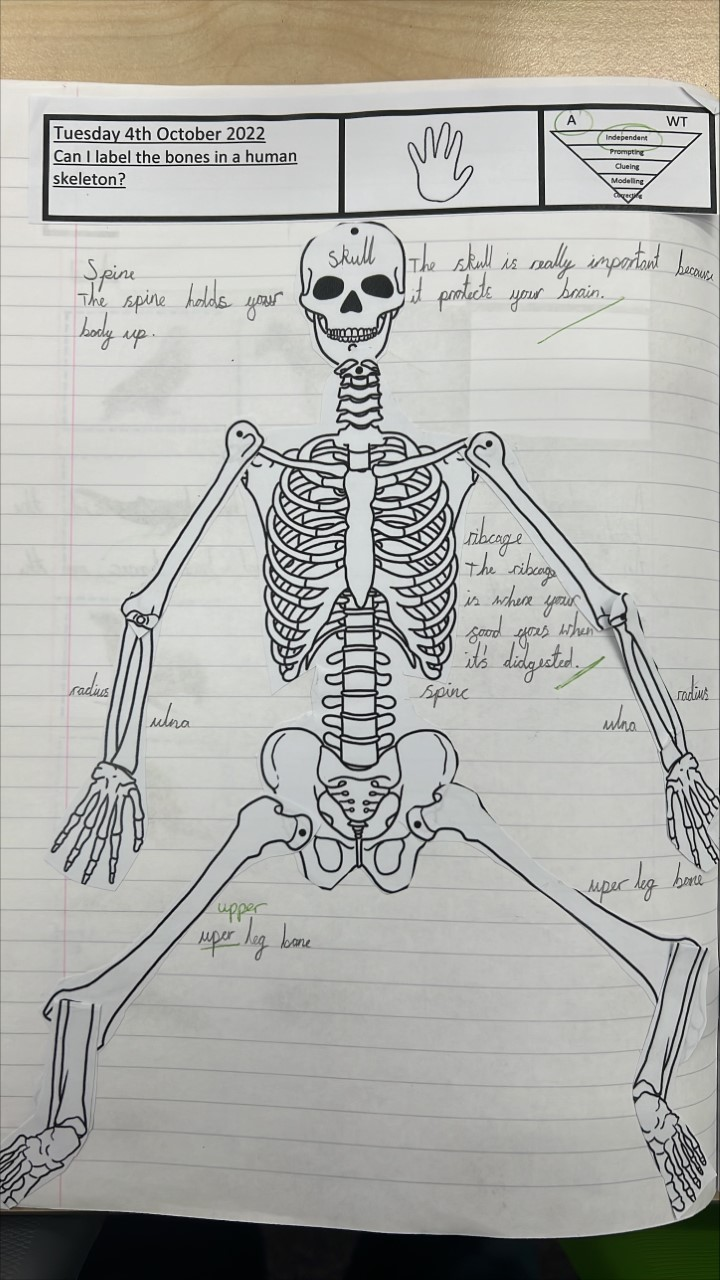 Tuesday 4th October 2022
Can I label the bones in a human
skeleton?
A WT
Independent
Prompting
Clueing
Modelling
Correcting
skull
Spine
The spine holds your
body up.
The skull is really important because
it protects your brain.
ribcage
The ribcage
is where your
good goes when
it's didgested.
spine
radius
ulna
radius
ulna
uper leg bone
upper
uper leg bone